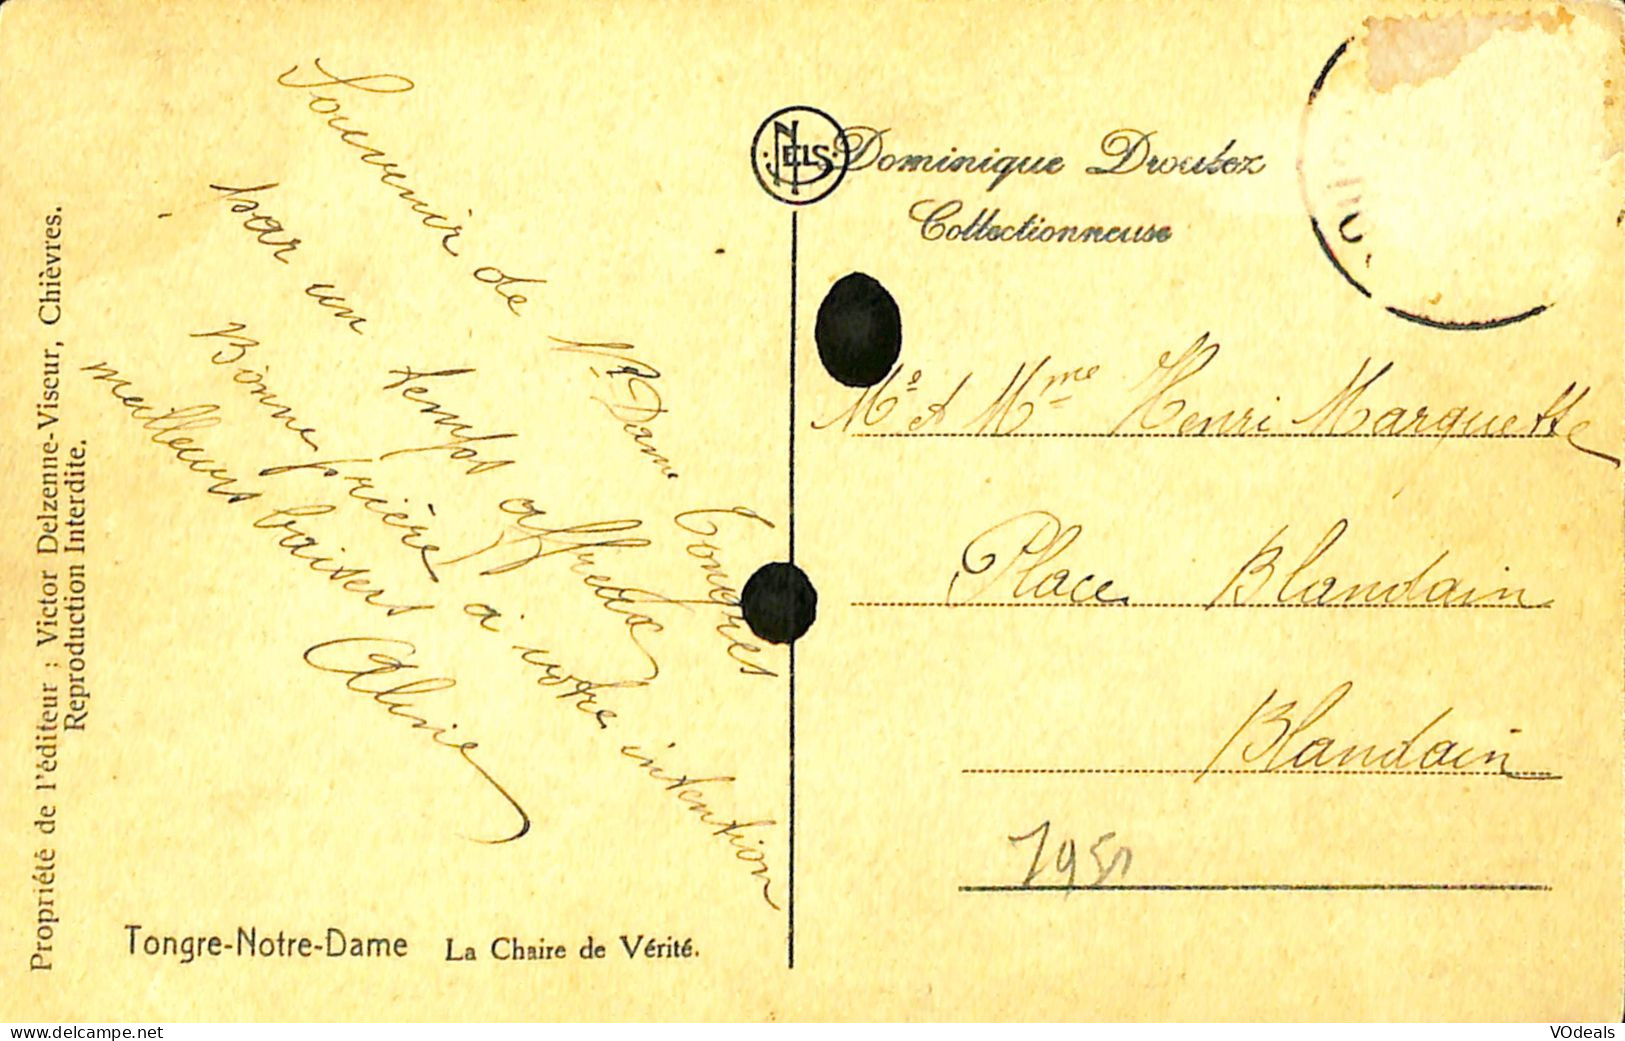 Souvenir de N. Dame Tongres
par un temps affreux
Bonne prière à votre intention
meilleurs baisers
Aline
Propriété de l'éditeur : Victor Delzenne-Viseur, Chièvres.
Reproduction Interdite.
Tongre-Notre-Dame La Chaire de Vérité.
NELS
Dominique Droulez
Collectionneuse
Mr et Mme Henri Marquette
Place Blandain
Blandain
1951
delcampe.net
VOdeals